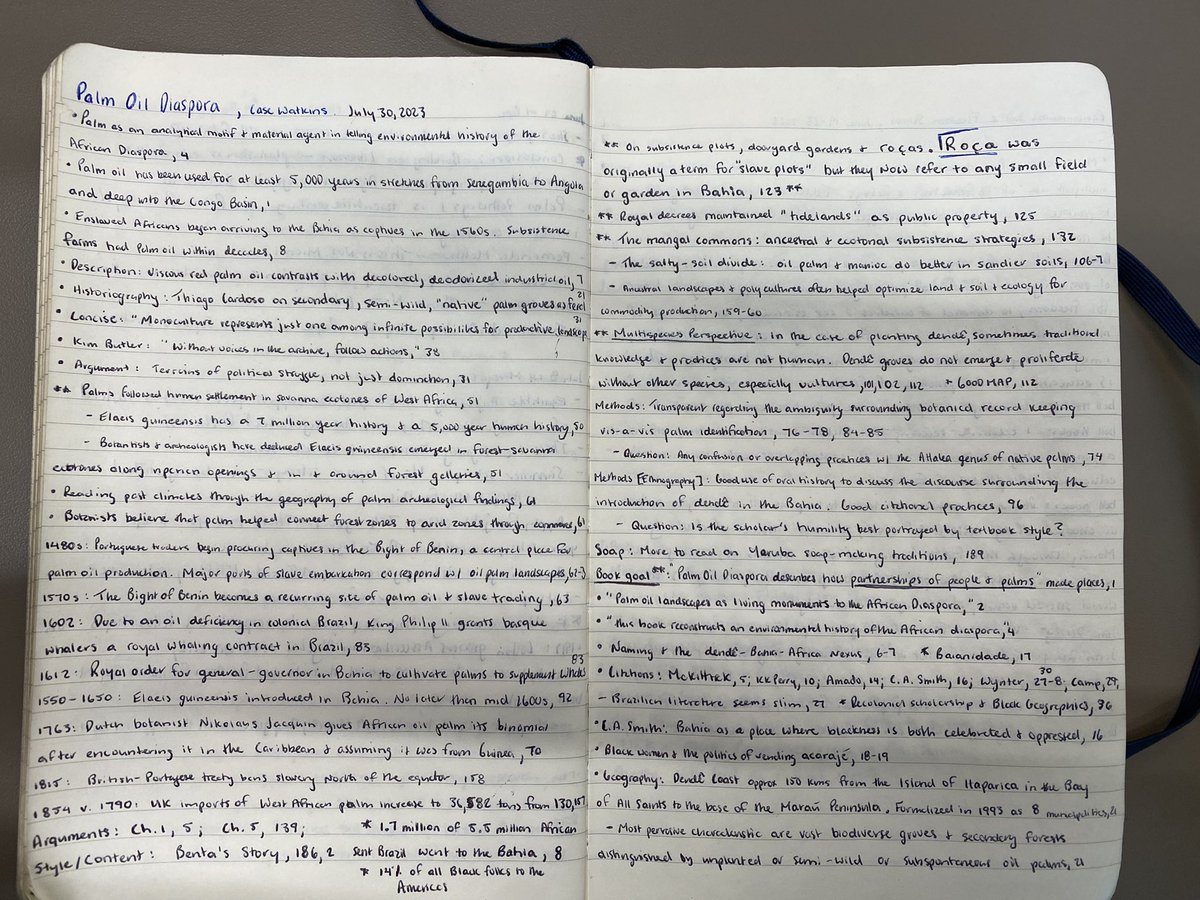 Palm Oil Diaspora, Case Watkins. July 30, 2023
• Palm as an analytical motif & material agent in telling environmental history of the
African Diaspora, 4
• Palm oil has been used for at least 5,000 years in stretches from Senegambia to Angola
and deep into the Congo Basin, 1
• Enslaved Africans began arriving to the Bahia as captives in the 1560s. Subsistence
farms had palm oil within decades, 8
• Description: Viscous red palm oil contrasts with decolored, deodorized industrial oil, 7
• Historiography: Thiago Cardoso on secondary, semi-wild, "native" palm groves as feral 21
• Concise: "Monoculture represents just one among infinite possibilities for productive landscapes 31
• Kim Butler: "Without voices in the archive, follow actions," 38
• Argument: Terrains of political struggle, not just domination, 31
** Palms followed human settlement in savanna ecotones of West Africa, 51
- Elaeis guineensis has a 7 million year history & a 5,000 year human history, 50
- Botanists & archeologists have deduced Elaeis guineensis emerged in forest-savanna
ecotones along riparian openings & in & around forest galleries, 51
• Reading past climates through the geography of palm archeological findings, 61
• Botanists believe that palm helped connect forest zones to arid zones through commerce, 61
1480s: Portuguese traders begin procuring captives in the Bight of Benin, a central place for
palm oil production. Major ports of slave embarkation correspond w/ oil palm landscapes, 62-3
1570s: The Bight of Benin becomes a recurring site of palm oil & slave trading, 63
1602: Due to an oil deficiency in colonial Brazil, King Philip II grants basque
whalers a royal whaling contract in Brazil, 83
1612: Royal order for general-governor in Bahia to cultivate palms to supplement whales 83
1550-1650: Elaeis guineensis introduced in Bahia. No later than mid 1600s, 92
1763: Dutch botanist Nikolaus Jacquin gives African oil palm its binomial
after encountering it in the Caribbean & assuming it was from Guinea, 70
1815: British-Portugese treaty bans slavery North of the equator, 158
1854 v. 1790: UK imports of West African palm increase to 36,582 tons from 130, 157
Arguments: Ch. 1, 5; Ch. 5, 139; * 1.7 million of 5.5 million African
Style/Content: Benta's Story, 186, 2 sent Brazil went to the Bahia, 8
* 14% of all Black folks to the
Americas
** On subsistence plots, dooryard gardens & roças. Roça was
originally a term for "slave plots" but they now refer to any small field
or garden in Bahia, 123 **
** Royal decrees maintained "tidelands" as public property, 125
** The mangal commons: ancestral & ecotonal subsistence strategies, 132
- The salty-soil divide: oil palm & manioc do better in sandier soils, 106-7
- Ancestral landscapes & polycultures often helped optimize land & soil & ecology for
commodity production, 159-60
** Multispecies Perspective: in the case of planting dendê, sometimes traditional
knowledge & practices are not human. Dendê groves do not emerge & proliferate
without other species, especially vultures, 101, 102, 112 + GOOD MAP, 112
Methods: Transparent regarding the ambiguity surrounding botanical record keeping
vis-a-vis palm identification, 76-78, 84-85
- Question: Any confusion or overlapping practices w/ the Attalea genus of native palms, 74
Methods [Ethnography]: Good use of oral history to discuss the discourse surrounding the
introduction of dendê in the Bahia. Good citational practices, 96
- Question: Is the scholar's humility best portrayed by textbook style?
Soap: More to read on Yoruba soap-making traditions, 189
Book goal**: "Palm Oil Diaspora describes how partnerships of people & palms" made places, 1
• "Palm oil landscapes as living monuments to the African Diaspora," 2
• "this book reconstructs an environmental history of the African diaspora," 4
• Naming & the dendê-Bahia-Africa Nexus, 6-7 * Baianidade, 17
• Citations: McKittrick, 5; KK Perry, 10; Amado, 14; C.A. Smith, 16; Wynter, 27-8, 30; Camp, 29,
- Brazilian literature seems slim, 27 * Decolonial scholarship & Black Geographics, 36
• C.A. Smith: Bahia as a place where blackness is both celebrated & oppressed, 16
• Black women & the politics of vending acarajé, 18-19
• Geography: Dendê Coast approx 150 kms from the Island of Itaparica in the Bay
of All Saints to the base of the Maraú Peninsula. Formalized in 1993 as 8 municipalities, 21
- Most pervasive characteristic are vast biodiverse groves & secondary forests
distinguished by unplanted or semi-wild or subspontaneous oil palms, 21